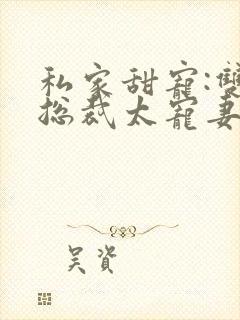 私家甜宠:雙
总裁太宠妻
吴资